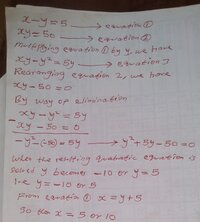 x - y = 5 → equation ①
xy = 50 → equation ②
Multiplying equation ① by y, we have
xy - y² = 5y → equation 3
Rearranging equation 2, we have
xy - 50 = 0
By way of elimination
xy - y² = 5y
- xy - 50 = 0
-y² - (-50) = 5y → y² + 5y - 50 = 0
when the resulting quadratic equation is
solved y becomes -10 or y = 5
i.e y = -10 or 5
from equation ① x = y + 5
So then x = 5 or 10